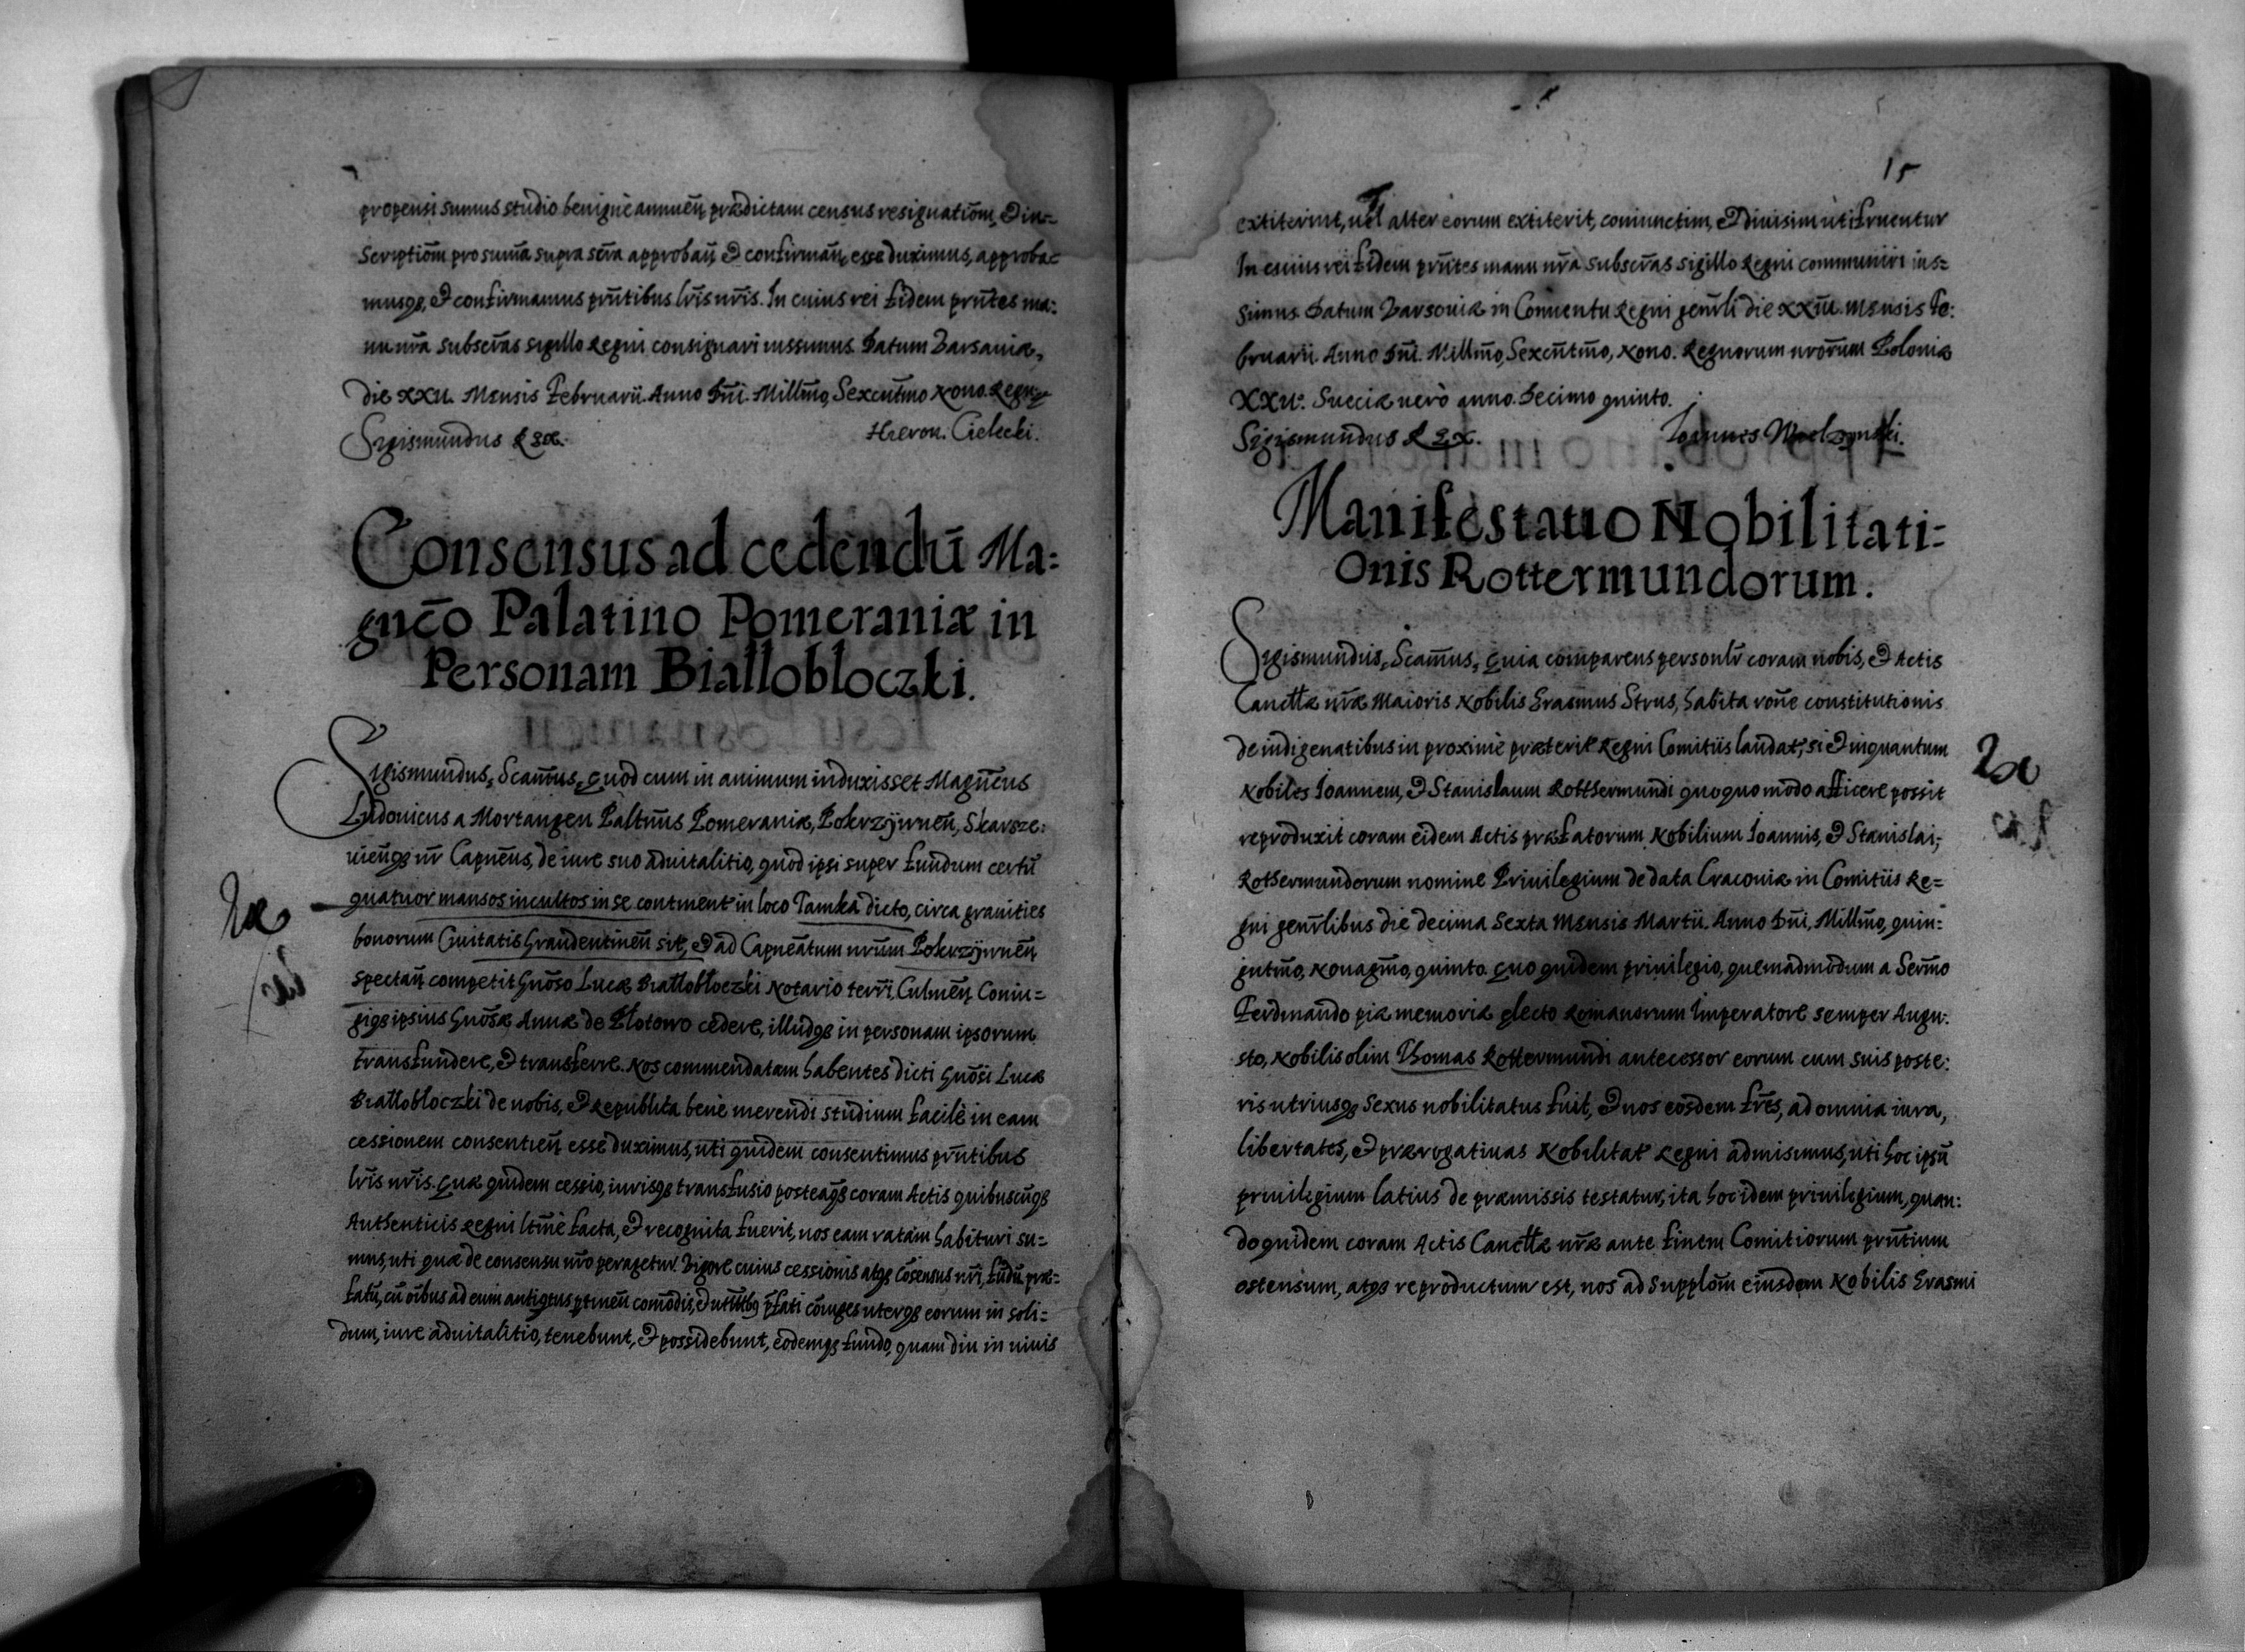 propensi sumus studio benigne annueñ prædictam census resignatiom̃, & in=
scriptiom̃ pro sum̃a supra scr̃a approbañ, & confirmañ, esse duximus, approba=
musq3, & confirmamus prñtibus lr̃is nr̃is. In cuius rei fidem prñtes ma:
nu nr̃a subscr̃as sigillo Regni consignari iussimus. Datum Varsauiæ,
die XXII. Mensis Februarii. Anno Dñi. Millm̃o, Sexcñtmo Nono. Regn
Sigismundus Rex. Hieron. Cielecki.
Consensus ad cedendũ Ma:
gnc̃o Palatino Pomeraniæ in
Personam Biallobloczki.
Sigismundus, Scam̃us, Quod cum in animum induxisset Magñcus
Ludouicus a Mortangen Paltñus Pomeraniæ, Pokrzÿwneñ, Skarsze:
uieñq3 nr̃ Capñeus, de iure suo aduitalitio, quod ipsi super fundum certũ
quatuor mansos incultos in se continent in loco Tamka dicto, circa granities
bonorum Ciuitatis Graudentineñ sit, & ad Capneãtum nrũm Pokrzÿwneñ
spectañ competit Gñoso Lucæ Biallobloczki Notario terrĩ Culmeñ Coniu=
giq3 ipsius Gñosæ Annæ de Płotowo cedere, illudq3 in personam ipsorum
transfundere, & transferre. Nos commendatam habentes dicti Gñosi Lucæ
Biallobloczki de nobis, & Republica bene merendi studium facile in eam
cessionem consentieñ esse duximus, uti quidem consentimus prñtibus
lr̃is nr̃is. Quæ quidem cessio, iurisq3 transfusio posteaq̃3 coram Actis quibuscũq3
Authenticis Regni ltm̃e facta, & recognita fuerit, nos eam ratam habituri su=
mus, uti quæ de consensu nr̃o peragetur. Vigore cuius cessionis atq3 cõsensus nr̃i, fũdũ præ=
fatũ, cũ oĩbus ad eum antiqtus ptineñ com̃odis, & utĩltb9 p̃fati cõiuges uterq3 eorum in soli=
dum, iure aduitalitio, tenebunt, & possidebunt, eodemq3 fundo, quam diu in uiuis
15
extiterint, uel alter eorum extiterit, coniunctim, & diuisim uti fruentur
In cuius rei fidem prñtes manu nr̃a subscr̃as sigillo Regni communiri ius=
simus. Datum Varsouiæ in Conuentu Regni genr̃li die XXIII. Mensis Fe:
bruarii. Anno Dñi. Millm̃o, Sexcñtm̃o, Nono. Regnorum nror̃um Poloniæ
XXII. Sueciæ uerò anno. Decimo quinto.
Sigismundus Rex. Ioannes
Manifestatio Nobilitati=
onis Rottermundorum.
Sigismundus, Scam̃us, Quia comparens personlr̃ coram nobis, & Actis
Canctłæ nr̃æ Maioris Nobilis Erasmus Strus, habita roñe constitutionis
de indigenatibus in proxime præterit Regni Comitiis laudat, si & inquantum
Nobiles Ioannem, & Stanislaum Rotthermundi quoquo modo afficere possit
reproduxit coram eidem Actis præfatorum Nobilium Ioannis, & Stanislai,
Rothermundorum nomine Priuilegium de data Cracouiæ in Comitiis Re=
gni genr̃libus die decima sexta Mensis Martii. Anno Dñi. Millm̃o, quin=
gntm̃o, Nonagm̃o, quinto. Quo quidem priuilegio, quemadmodum a Serm̃o
Ferdinando piæ memoriæ electo Romanorum Imperatore semper Augu:
sto, Nobilis olim Thomas Rottermundt antecessor eorum cum suis poste:
ris utriusq3 sexus nobilitatus fuit, & nos eosdem frẽs, ad omnia iura,
libertates, & prærogatiuas Nobilitat Regni admisimus, uti hoc ipsũ
priuilegium latius de præmissis testatur, ita hoc idem priuilegium, quan:
doquidem coram Actis Canctłæ nr̃æ ante finem Comitiorum prñtium
ostensum, atq3 reproductum est, nos ad supplom̃ eiusdem Nobilis Erasmi